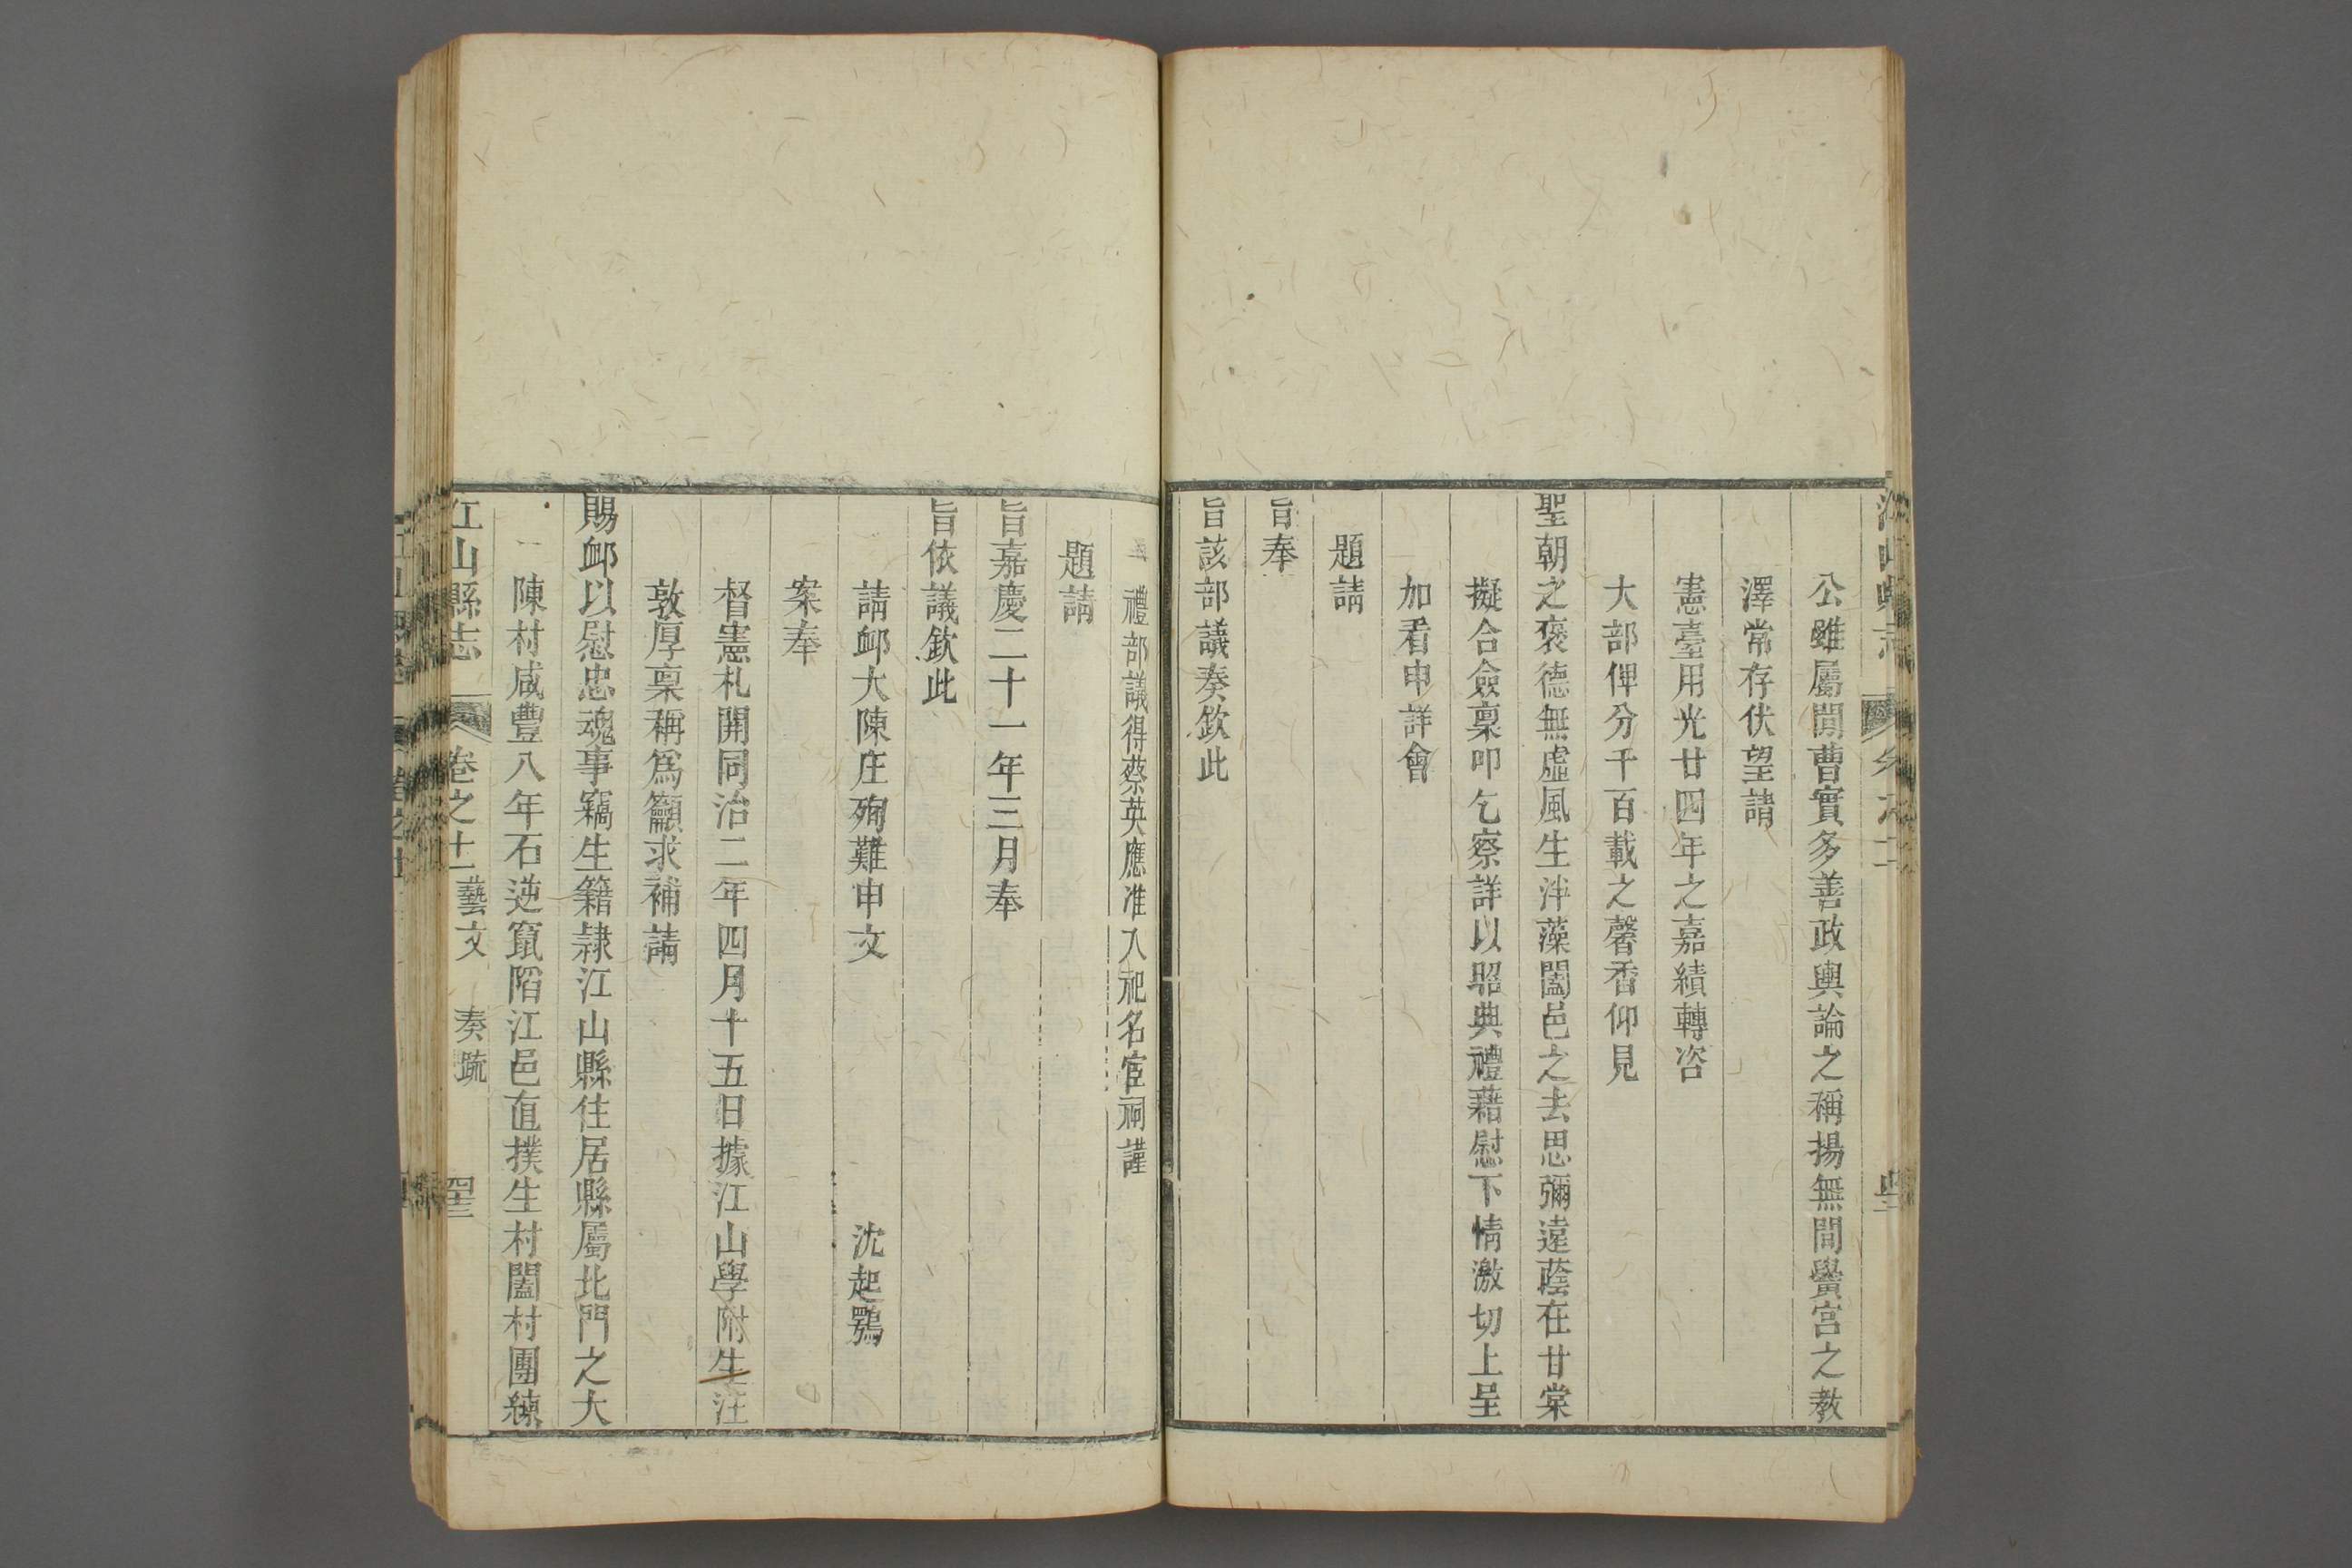 公雖屬閒曹實多善政輿論之稱揚無間黌宮之教
澤常存伏望請
憲臺用光廿四年之嘉績轉咨
大部俾分千百載之馨香仰見
聖朝之褒德無虛風生泮藻闔邑之去思彌遠蔭在甘棠
擬合僉稟叩乞察詳以昭典禮藉慰下情激切上呈
加看申詳會
題請
旨奉
旨該部議奏欽此
禮部議得蔡英應准入祀名宦祠謹
題請
旨嘉慶二十一年三月奉
旨依議欽此
請卹大陳庄殉難申文 沈起鶚
案奉
督憲札開同治二年四月十五日據江山學附生汪
敦厚稟稱爲籲求補請
賜卹以慰忠魂事竊生籍隷江山縣住居縣屬北門之大
陳村咸豐八年石逆竄陷江邑直撲生村闔村團練
江山縣志 卷之十一藝文 奏疏